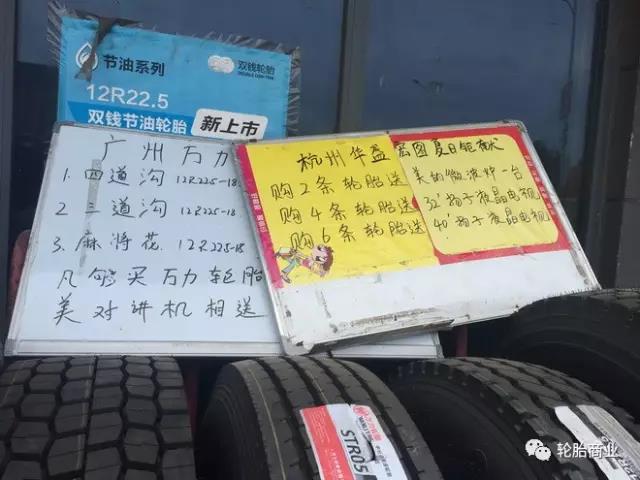 节油系列
双钱轮胎
12R22.5
双钱节油轮胎
新上市
广州万力
1. 四道沟 12R225-18
2. 三道沟 12R225-18
3. 麻将花. 12R225-18
凡购买万力轮胎
美对讲机相送
杭州华盈
购2条轮胎送
购4条轮胎送
购6条轮胎送
宏图夏日钜献
美的微波炉一台
32'扬子液晶电视
40'扬子液晶电视
STR05
轮胎商业